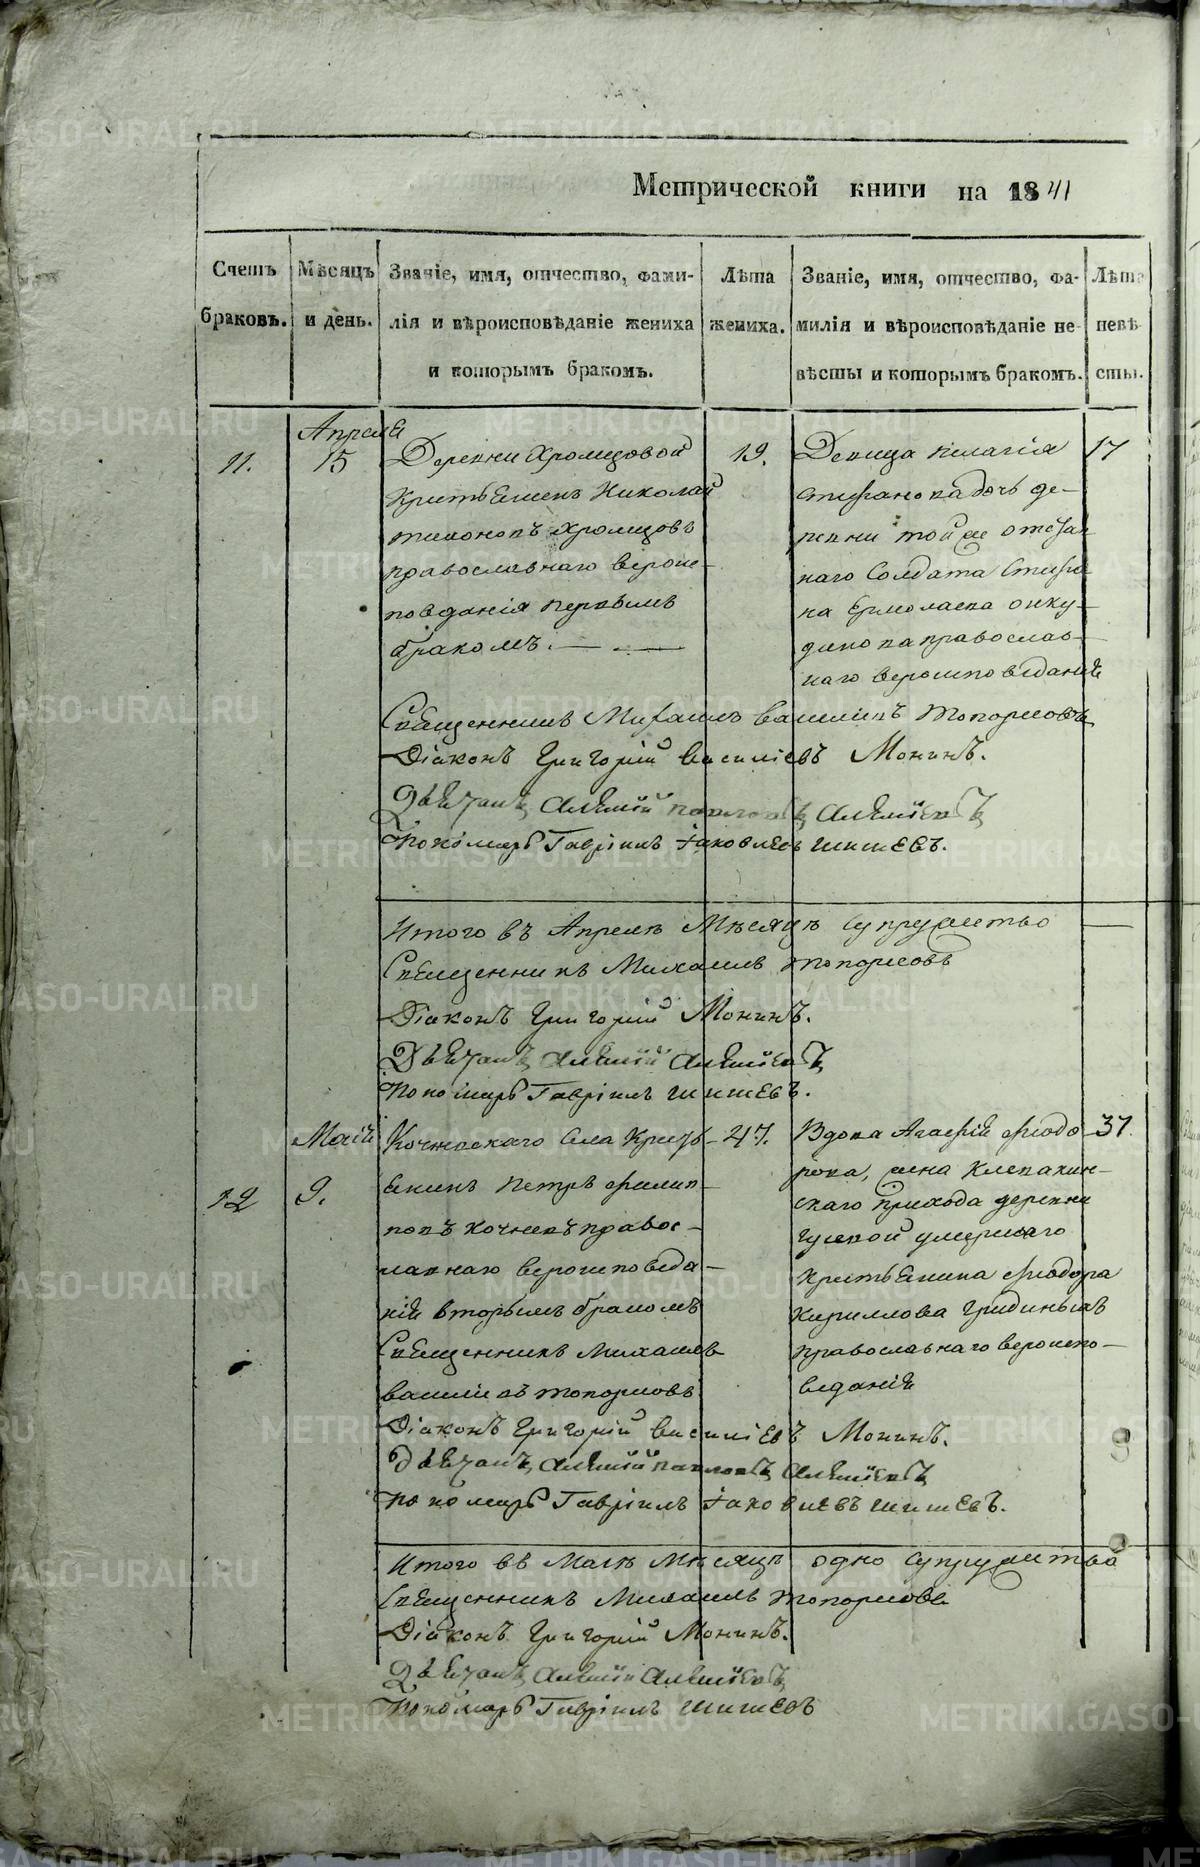 Метрической книги на 1841
Счетъ браковъ.
Мѣсяцъ и день.
Званіе, имя, отчество, фами-
лія и вѣроисповѣданіе жениха
и которымъ бракомъ.
Лѣта жениха.
Званіе, имя, отчество, фа-
милія и вѣроисповѣданіе не-
вѣсты и которымъ бракомъ.
Лѣта невѣ-
сты.
11.
Апреля
15
Деревни Хромцовой
Крестьянинъ Николай
Тихоновъ Хромцовъ
православнаго вероис-
поведанія первымъ
бракомъ.
19.
Девица Пелагія
Стефанова дочь де-
ревни той же
наго Солдата Стефа-
на Ермолаева
православ-
наго вероисповеданія
17
Священникъ Михаилъ Васильевъ Топорковъ
Діаконъ Григорій Василіевъ Монинъ.
Дьячокъ Алексій Павловъ Алексіевъ
Пономарь Гавріилъ Іаковлевъ Шишевъ.
Итого въ Апреле Мѣсяцѣ супружество
Священникъ Михаилъ Топорковъ
Діаконъ Григорій Монинъ.
Дьячокъ Алексій Алексіевъ
Пономарь Гавріилъ Шишевъ.
12
Маій
9.
Кочневскаго Села Кресть-
янинъ Петръ Филип-
повъ Кочневъ правос-
лавнаго вероисповеда-
нія вторымъ бракомъ
47.
Вдова Агафія Фіодо-
рова, жена Клевакин-
скаго прихода деревни
Гусевой умершаго
Крестьянина Фіодора
Кириллова
православнаго вероиспо-
веданія
37.
Священникъ Михаилъ
Васильевъ Топорковъ
Діаконъ Григорій Василіевъ Монинъ.
Дьячокъ Алексій Павловъ Алексіевъ
Пономарь Гавріилъ Іаковлевъ Шишевъ.
Итого въ Маіѣ Мѣсяцѣ одно супружество
Священникъ Михаилъ Топорковъ
Діаконъ Григорій Монинъ.
Дьячокъ Алексій Алексіевъ
Пономарь Гавріилъ Шишевъ
METRIKI.GASO-URAL.RU